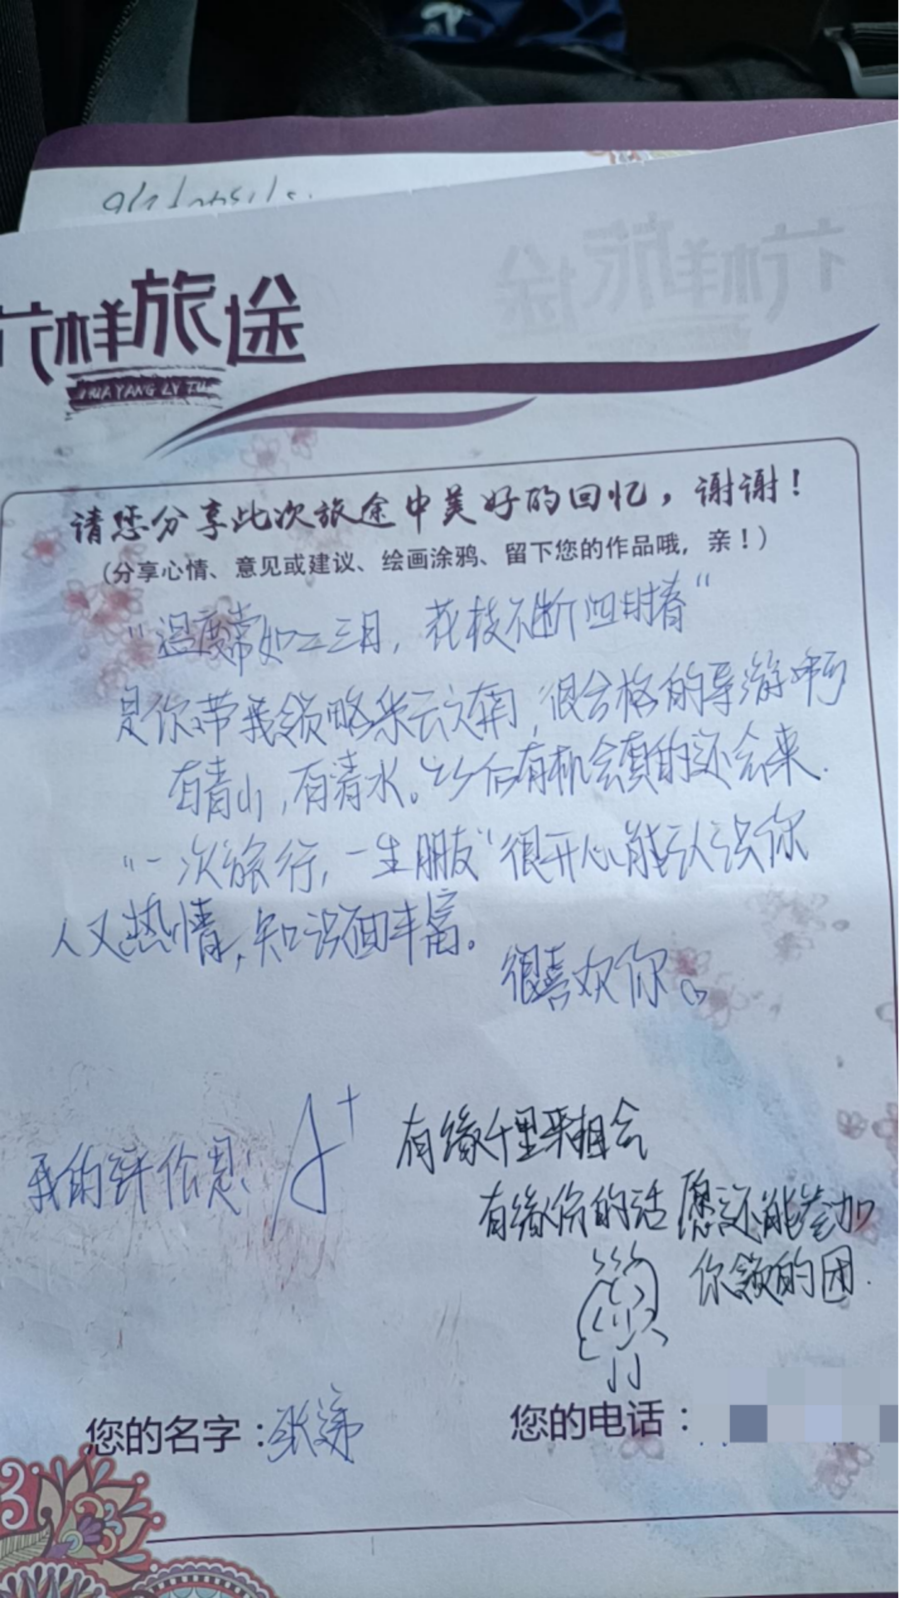 花样旅途
HUA YANG LV TU
请您分享此次旅途中美好的回忆，谢谢！
（分享心情、意见或建议、绘画涂鸦、留下您的作品哦，亲！）
“温度常如二三月，花枝不断四时春”
是你带我领略彩云之南，很合格的导游啊
有青山，有清水。以后有机会真的还会来.
“一次旅行，一生朋友”很开心能认识你
人又热情，知识面丰富。
很喜欢你。
我的评价是：A+
有缘千里来相会
有缘份的话 愿还能参加
你领的团.
您的名字：张
您的电话：